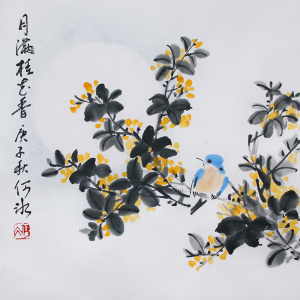 月满桂花香庚子秋何冰